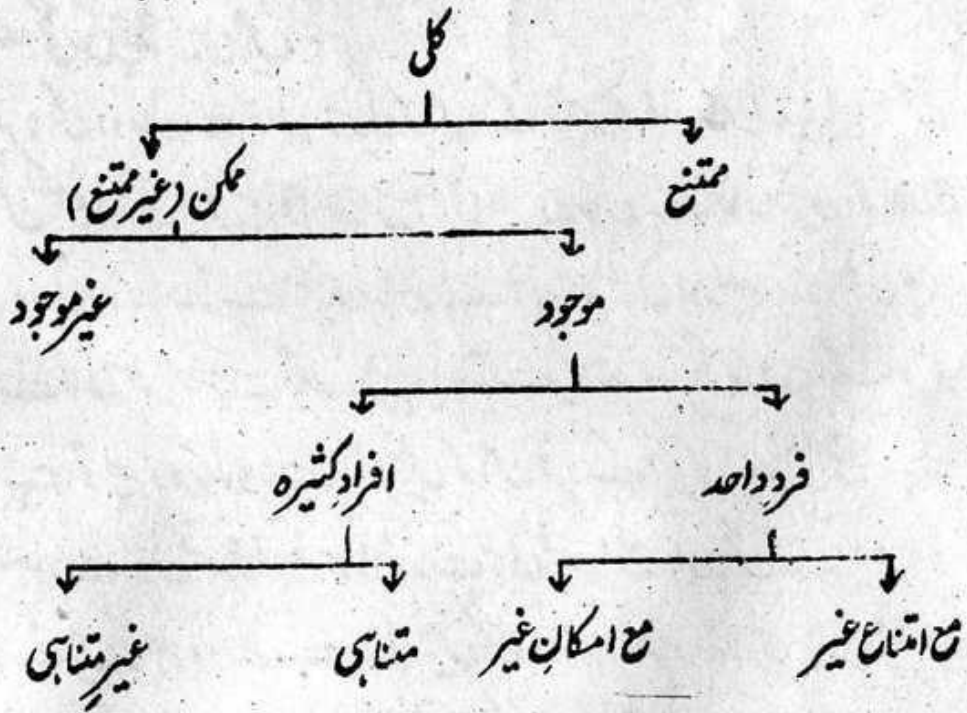 کلی
ممتنع ممکن (غیر ممتنع)
موجود غیر موجود
فردِ واحد افرادِ کثیرہ
مع امتناع غیر مع امکانِ غیر متناہی غیرِ متناہی